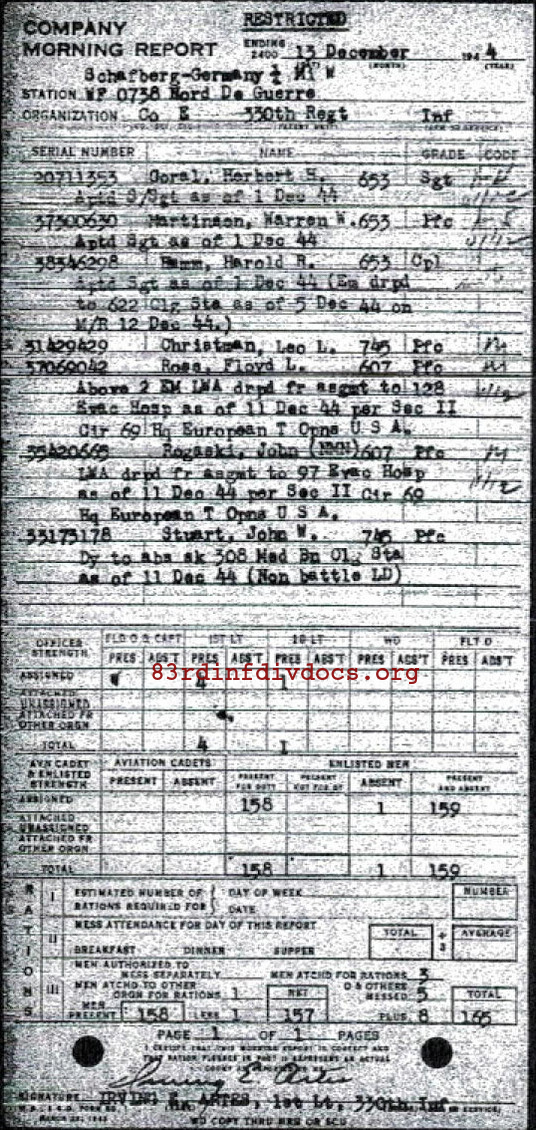 RESTRICTED
COMPANY
MORNING REPORT
ENDING 2400 13 December 1944
(DAY) (MONTH) (YEAR)
Schafberg-Germany ½ Mi W
STATION WF 0738 Nord De Guerre
ORGANIZATION Co E 330th Regt Inf
SERIAL NUMBER NAME GRADE CODE
20711353 Goral, Herbert H. 653 Sgt
Aptd S/Sgt as of 1 Dec 44
37300630 Martinson, Warren W. 653 Pfc
Aptd Sgt as of 1 Dec 44
38346298 Hamm, Harold R. 653 Cpl
Aptd Sgt as of 1 Dec 44 (Em drpd
to 622 Clg Sta as of 5 Dec 44 on
M/R 12 Dec 44.)
31429429 Christman, Leo L. 745 Pfc
37069042 Ross, Floyd L. 607 Pfc
Above 2 EM LWA drpd fr asgmt to 128
Evac Hosp as of 11 Dec 44 per Sec II
Cir 69 Hq European T Opns U S A.
35420665 Rogaski, John (NMN) 607 Pfc
LWA drpd fr asgmt to 97 Evac Hosp
as of 11 Dec 44 per Sec II Cir 69
Hq European T Opns U S A.
33173178 Stuart, John W. 745 Pfc
Dy to abs sk 308 Med Bn Clg Sta
as of 11 Dec 44 (Non battle LD)
OFFICER STRENGTH FLD O & CAPT 1ST LT 2D LT WO FLT O
PRES ABS'T PRES ABS'T PRES ABS'T PRES ABS'T PRES ABS'T
83rdinfdivdocs.org
ASSIGNED 4 1
ATTACHED UNASSIGNED
ATTACHED FR OTHER ORGN
TOTAL 4 1
AVN CADET & ENLISTED STRENGTH AVIATION CADETS ENLISTED MEN
PRESENT ABSENT PRESENT FOR DUTY PRESENT NOT FOR DY ABSENT PRESENT AND ABSENT
ASSIGNED 158 1 159
ATTACHED UNASSIGNED
ATTACHED FR OTHER ORGN
TOTAL 158 1 159
RATIONS
I ESTIMATED NUMBER OF RATIONS REQUIRED FOR DAY OF WEEK DATE NUMBER
II MESS ATTENDANCE FOR DAY OF THIS REPORT TOTAL ÷ 3 AVERAGE
BREAKFAST DINNER SUPPER
III MEN AUTHORIZED TO MESS SEPARATELY MEN ATCHD FOR RATIONS 3
MEN ATCHD TO OTHER ORGN FOR RATIONS 1 NET O & OTHERS MESSED 5 TOTAL
MEN PRESENT 158 LESS 1 157 PLUS 8 165
PAGE 1 OF 1 PAGES
I CERTIFY THAT THIS MORNING REPORT IS CORRECT AND
Irving E. Artes
SIGNATURE IRVING E. ARTES, 1st Lt, 330th Inf